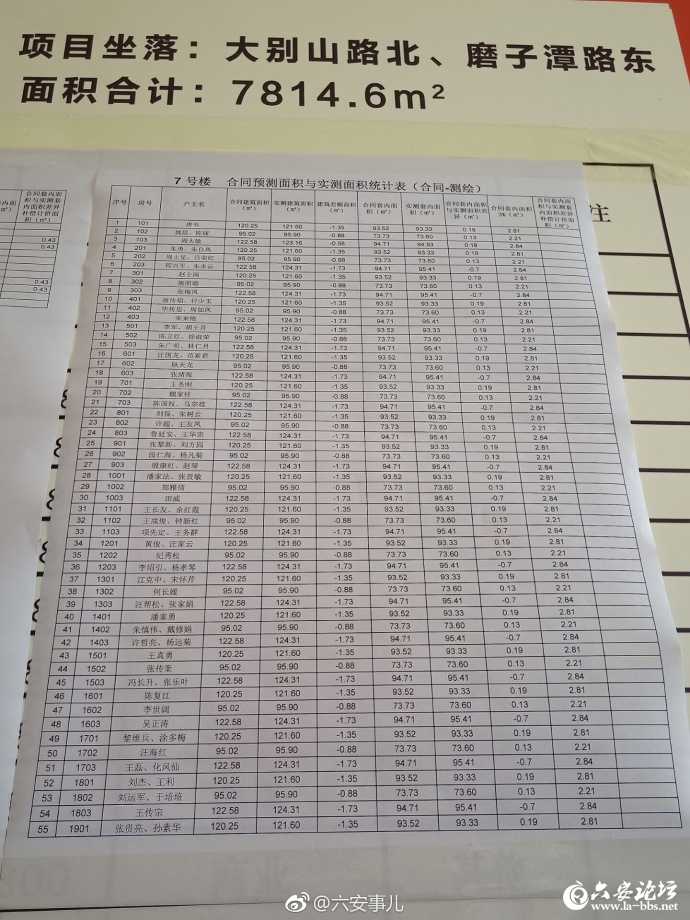 项目坐落：大别山路北、磨子潭路东
面积合计：7814.6m²
7号楼 合同预测面积与实测面积统计表（合同-测绘）
序号 房号 户主名 合同建筑面积（㎡） 实测建筑面积（㎡） 建筑差额面积（㎡） 合同套内面积（㎡） 实测套内面积（㎡） 合同套内面积与实测套内面积差异（㎡） 合同套内面积3%（㎡） 合同套内面积与实测套内面积差异补偿计价面积（㎡）
注
0.43
0.43
0.43
1 101 120.25 121.60 -1.35 93.52 93.33 0.19 2.81
2 102 95.02 95.90 -0.88 73.73 73.60 0.13 2.21
3 103 122.58 94.71 2.84
4 201 120.25 121.60 -1.35 93.52 93.33 0.19 2.81
5 202 95.02 95.90 -0.88 73.73 73.60 0.13 2.21
6 203 122.58 124.31 -1.73 94.71 95.41 -0.7 2.84
7 301 120.25 121.60 -1.35 93.52 93.33 0.19 2.81
8 302 95.02 95.90 -0.88 73.73 73.60 0.13 2.21
9 303 122.58 124.31 -1.73 94.71 95.41 -0.7 2.84
10 401 120.25 121.60 -1.35 93.52 93.33 0.19 2.81
11 402 95.02 95.90 -0.88 73.73 73.60 0.13 2.21
12 403 122.58 124.31 -1.73 94.71 95.41 -0.7 2.84
13 501 120.25 121.60 -1.35 93.52 93.33 0.19 2.81
14 502 95.02 95.90 -0.88 73.73 73.60 0.13 2.21
15 503 122.58 124.31 -1.73 94.71 95.41 -0.7 2.84
16 601 120.25 121.60 -1.35 93.52 93.33 0.19 2.81
17 602 95.02 95.90 -0.88 73.73 73.60 0.13 2.21
18 603 122.58 124.31 -1.73 94.71 95.41 -0.7 2.84
19 701 120.25 121.60 -1.35 93.52 93.33 0.19 2.81
20 702 95.02 95.90 -0.88 73.73 73.60 0.13 2.21
21 703 122.58 124.31 -1.73 94.71 95.41 -0.7 2.84
22 801 刘保、朱树云 120.25 121.60 -1.35 93.52 93.33 0.19 2.81
23 802 许超、王友凤 95.02 95.90 -0.88 73.73 73.60 0.13 2.21
24 803 122.58 124.31 -1.73 94.71 95.41 -0.7 2.84
25 901 120.25 121.60 -1.35 93.52 93.33 0.19 2.81
26 902 95.02 95.90 -0.88 73.73 73.60 0.13 2.21
27 903 122.58 124.31 -1.73 94.71 95.41 -0.7 2.84
28 1001 120.25 121.60 -1.35 93.52 93.33 0.19 2.81
29 1002 95.02 95.90 -0.88 73.73 73.60 0.13 2.21
30 1003 田威 122.58 124.31 -1.73 94.71 95.41 -0.7 2.84
31 1101 王长友、余红霞 120.25 121.60 -1.35 93.52 93.33 0.19 2.81
32 1102 95.02 95.90 -0.88 73.73 73.60 0.13 2.21
33 1103 项先定、王务群 122.58 124.31 -1.73 94.71 95.41 -0.7 2.84
34 1201 黄俊、汪家云 120.25 121.60 -1.35 93.52 93.33 0.19 2.81
35 1202 纪秀松 95.02 95.90 -0.88 73.73 73.60 0.13 2.21
36 1203 李绍引、杨孝琴 122.58 124.31 -1.73 94.71 95.41 -0.7 2.84
37 1301 江克中、宋怀芹 120.25 121.60 -1.35 93.52 93.33 0.19 2.81
38 1302 何长媛 95.02 95.90 -0.88 73.73 73.60 0.13 2.21
39 1303 汪帮松、张家娟 122.58 124.31 -1.73 94.71 95.41 -0.7 2.84
40 1401 潘家勇 120.25 121.60 -1.35 93.52 93.33 0.19 2.81
41 1402 朱慎伟、戴修娟 95.02 95.90 -0.88 73.73 73.60 0.13 2.21
42 1403 许哲亮、杨运菊 122.58 124.31 -1.73 94.71 95.41 -0.7 2.84
43 1501 王高勇 120.25 121.60 -1.35 93.52 93.33 0.19 2.81
44 1502 张传业 95.02 95.90 -0.88 73.73 73.60 0.13 2.21
45 1503 冯长升、张乐叶 122.58 124.31 -1.73 94.71 95.41 -0.7 2.84
46 1601 陈复江 120.25 121.60 -1.35 93.52 93.33 0.19 2.81
47 1602 李世润 95.02 95.90 -0.88 73.73 73.60 0.13 2.21
48 1603 吴正涛 122.58 124.31 -1.73 94.71 95.41 -0.7 2.84
49 1701 黎维兵、涂多梅 120.25 121.60 -1.35 93.52 93.33 0.19 2.81
50 1702 汪海红 95.02 95.90 -0.88 73.73 73.60 0.13 2.21
51 1703 王磊、化凤仙 122.58 124.31 -1.73 94.71 95.41 -0.7 2.84
52 1801 刘杰、王利 120.25 121.60 -1.35 93.52 93.33 0.19 2.81
53 1802 刘运军、于培培 95.02 95.90 -0.88 73.73 73.60 0.13 2.21
54 1803 王传宗 122.58 124.31 -1.73 94.71 95.41 -0.7 2.84
55 1901 张贵亮、孙素华 120.25 121.60 -1.35 93.52 93.33 0.19 2.81
@六安事儿
六安论坛
www.la-bbs.net